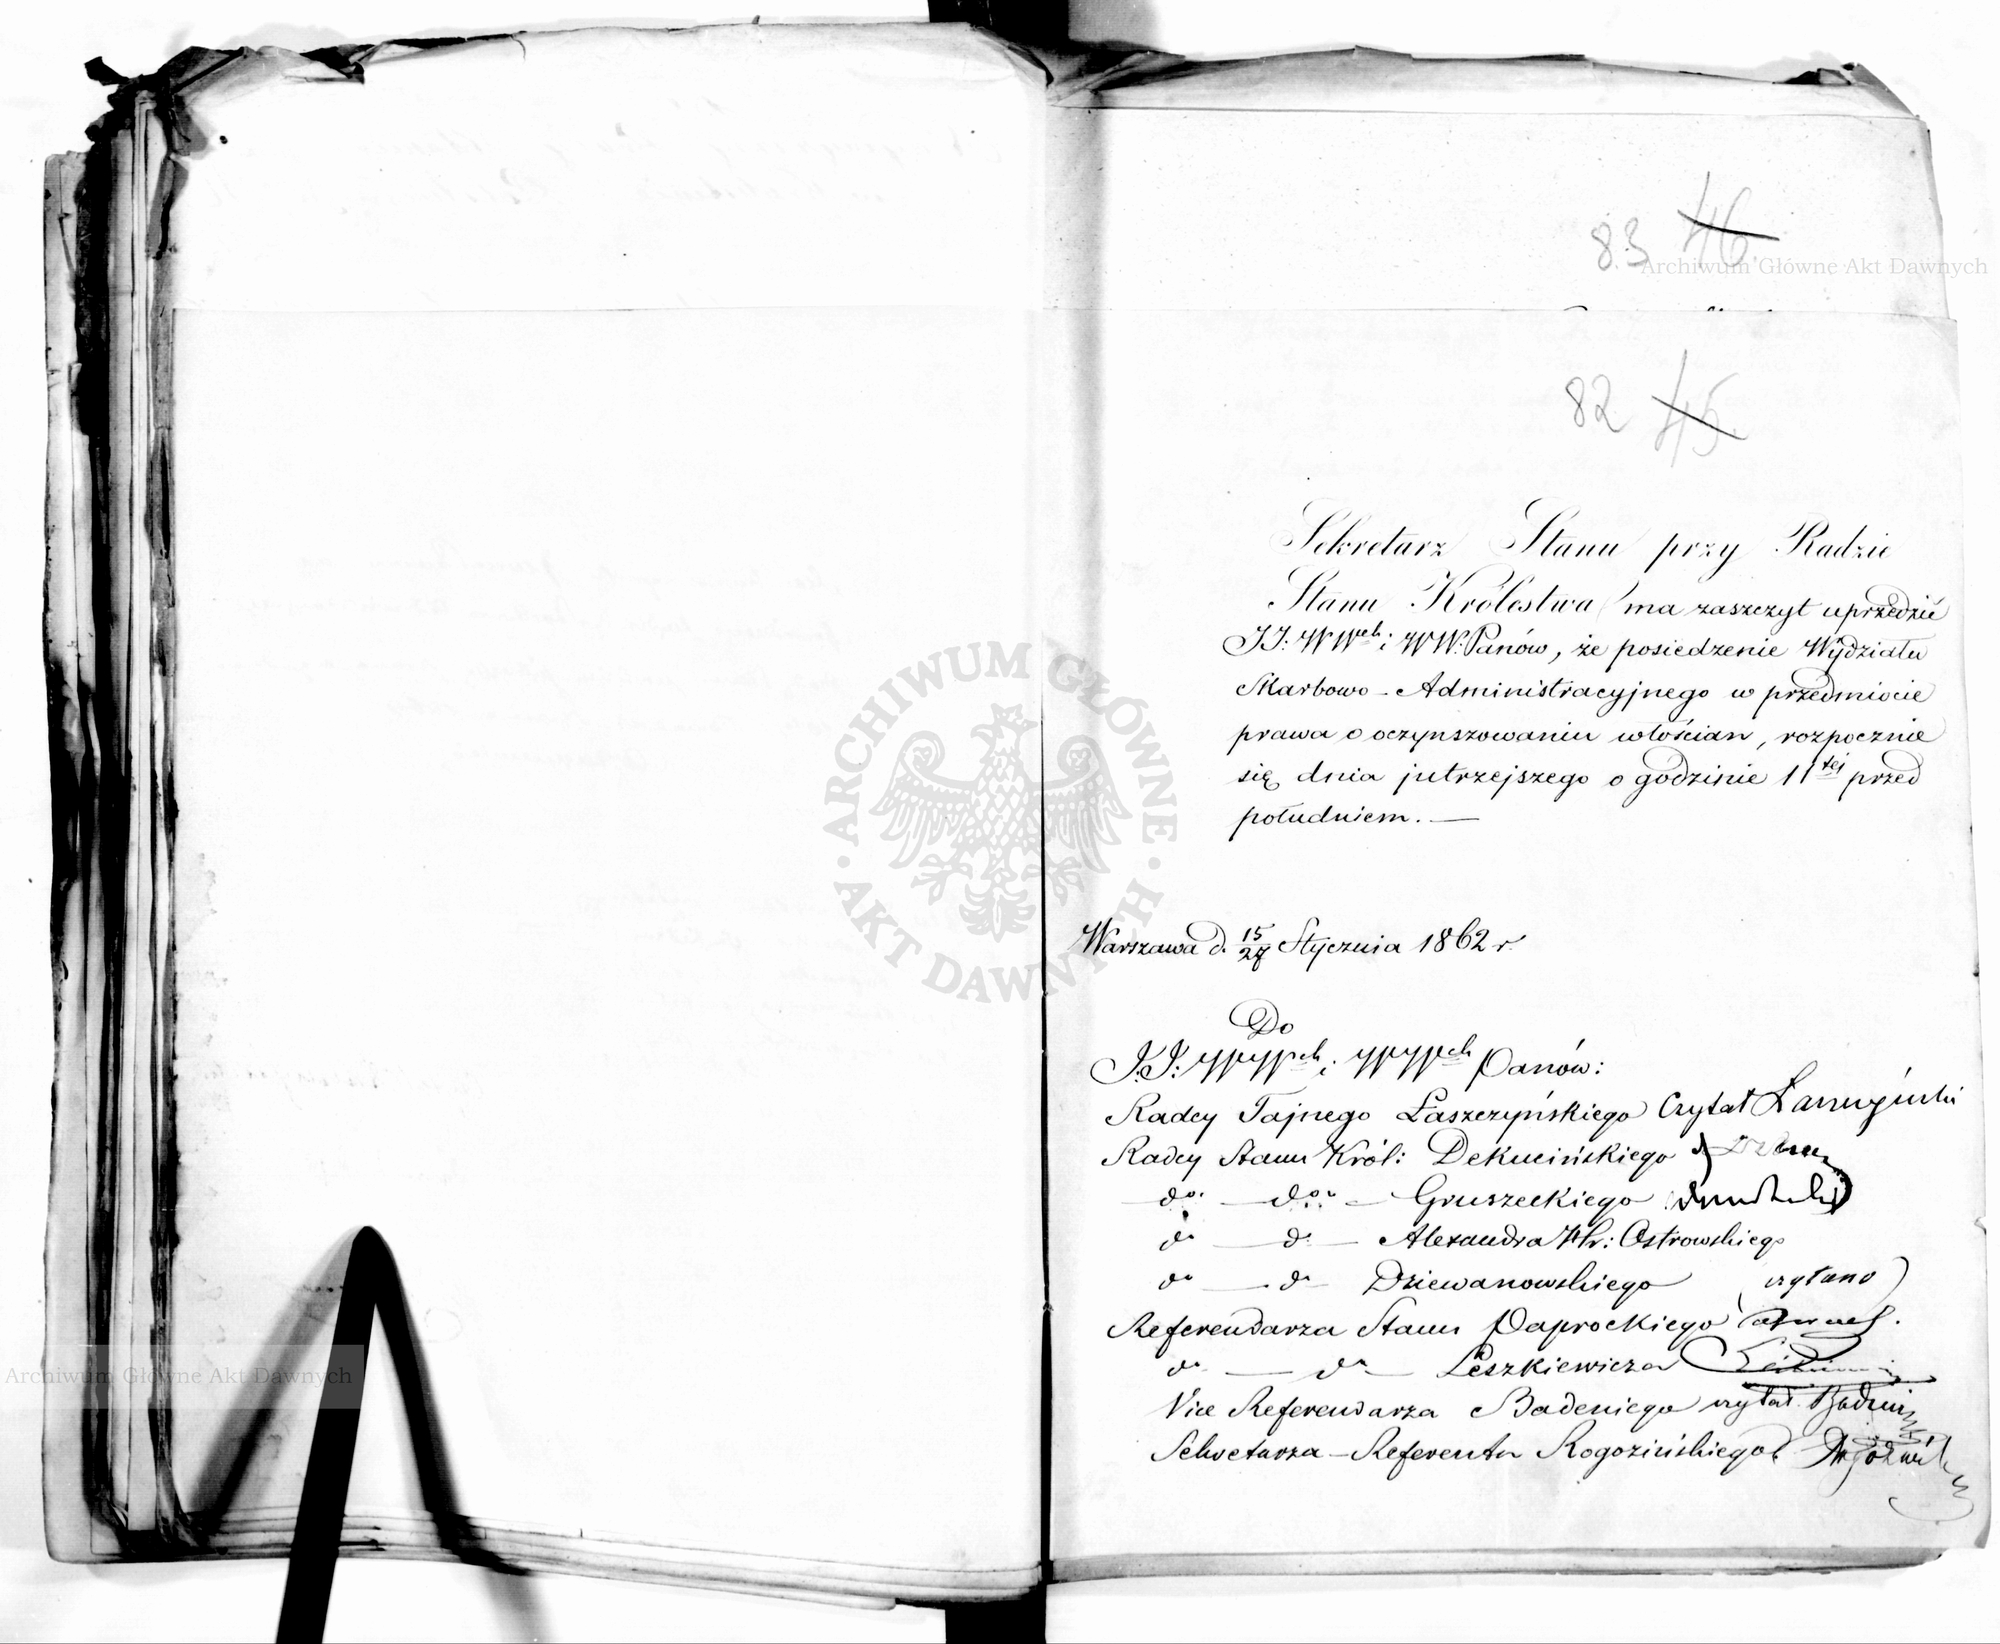 83 46
Archiwum Główne Akt Dawnych
82 45
Sekretarz Stanu przy Radzie
Stanu Królestwa ma zaszczyt uprzedzić
JJ: WWch i WW: Panów, że posiedzenie Wydziału
Skarbowo-Administracyjnego w przedmiocie
prawa o oczynszowaniu włościan, rozpocznie
się dnia jutrzejszego o godzinie 11tej przed
południem. —
ARCHIWUM GŁÓWNE · AKT DAWNYCH ·
Warszawa d. 15/27 Stycznia 1862 r.
Do
J.J: WWch i WWch Panów:
Radcy Tajnego Łaszczyńskiego Czytał Łaszczyński
Radcy Stanu Król: Dekucińskiego
do. — do. — Gruszeckiego
do — do — Alexandra Hr: Ostrowskiego
do — do — Dziewanowskiego czytano
Referendarza Stanu Paprockiego
do — do — Leszkiewicza
Archiwum Główne Akt Dawnych
Vice Referendarza Badeniego czytał Badeni
Sekretarza-Referenta Rogozińskiego